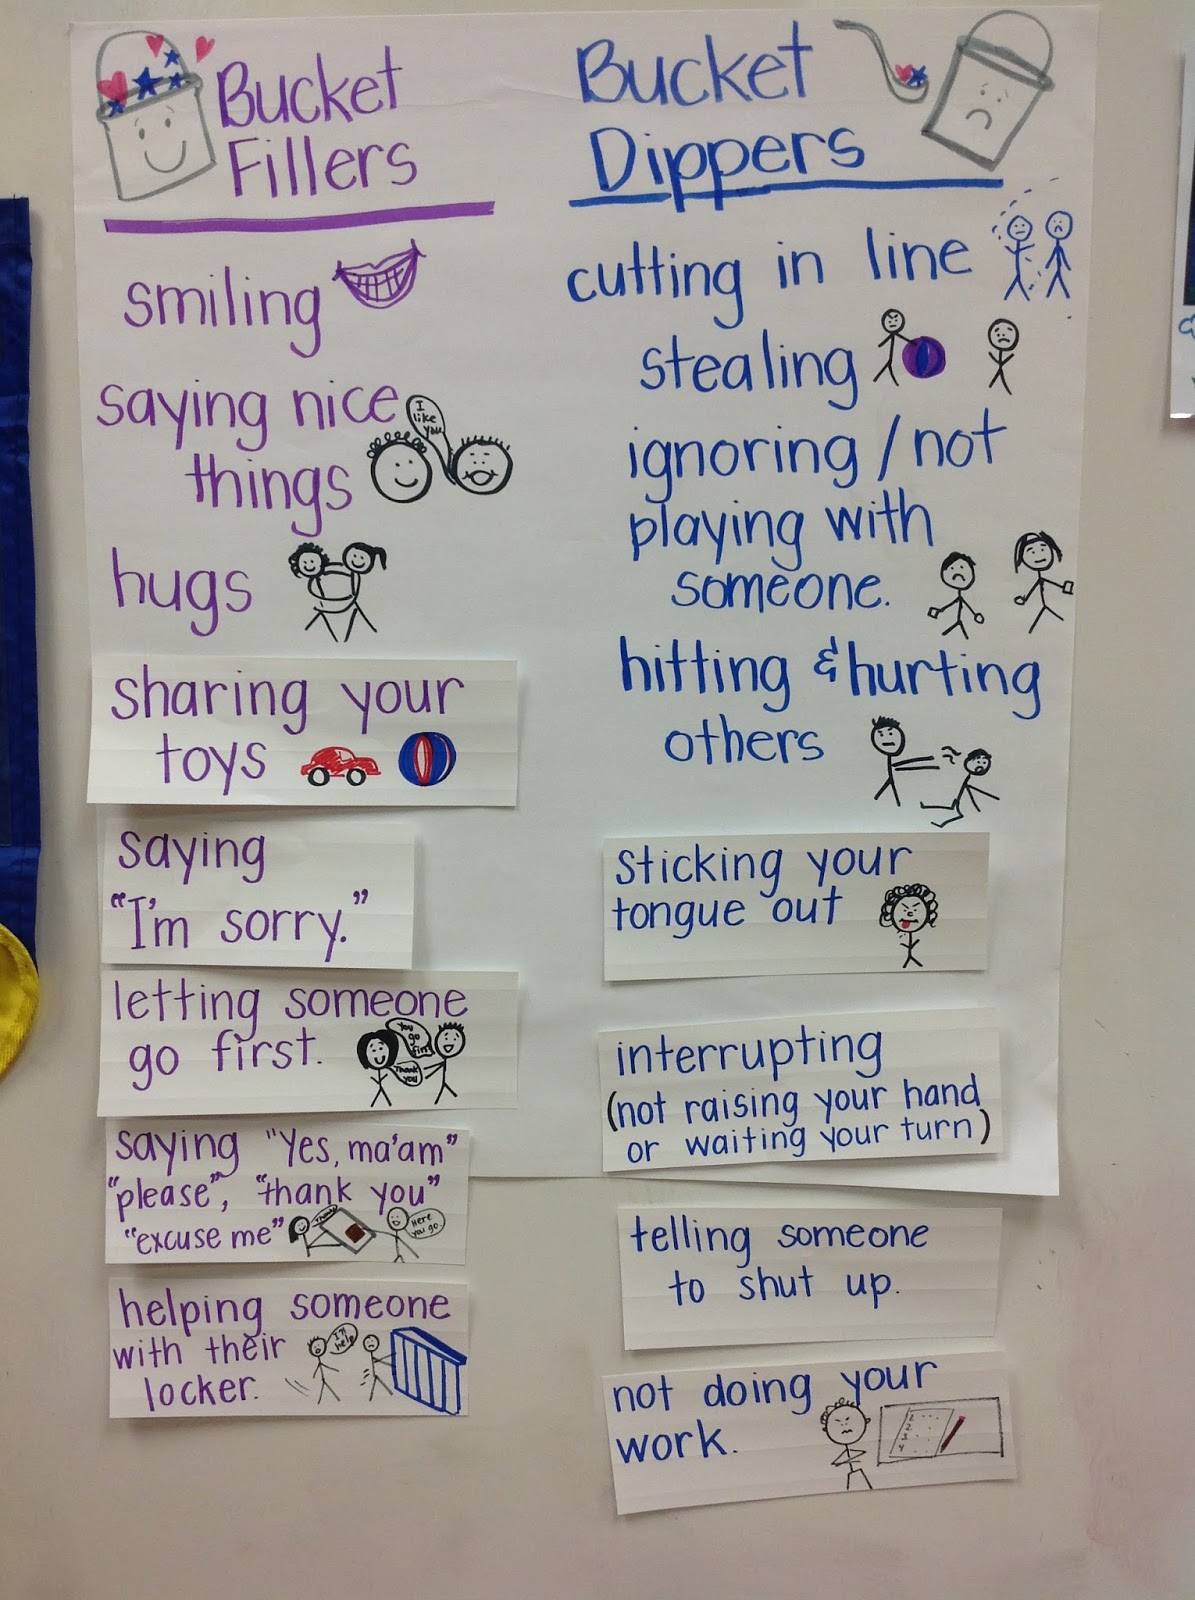 Bucket
Fillers
smiling
saying nice
things
I
like
you.
hugs
sharing your
toys
saying
"I'm sorry."
letting someone
go first.
You
go
first
Thank
you
saying "Yes, ma'am"
"please", "thank you"
"excuse me"
Thanks
Here
you go.
helping someone
with their
locker.
I'll
help
Bucket
Dippers
cutting in line
stealing
ignoring / not
playing with
someone.
hitting & hurting
others
sticking your
tongue out
interrupting
(not raising your hand
or waiting your turn)
telling someone
to shut up.
not doing your
work.
1
2
3
4